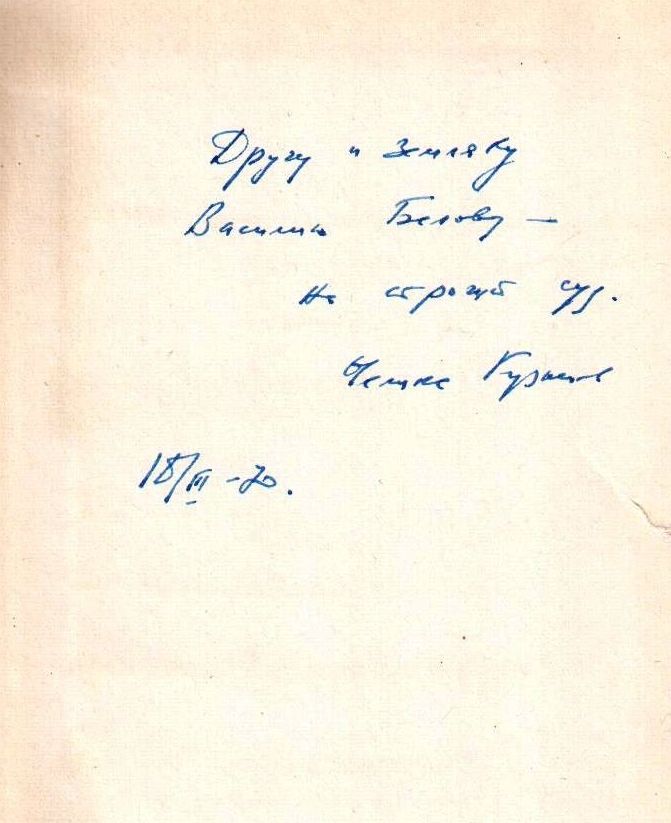 Другу и земляку
Василию Белову —
на строгий суд.
18/III -70.